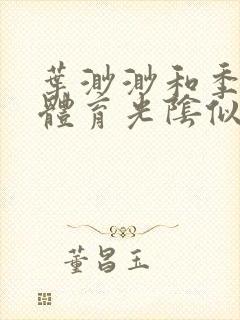 葉渺渺和季
體育光陰似
董昌玉